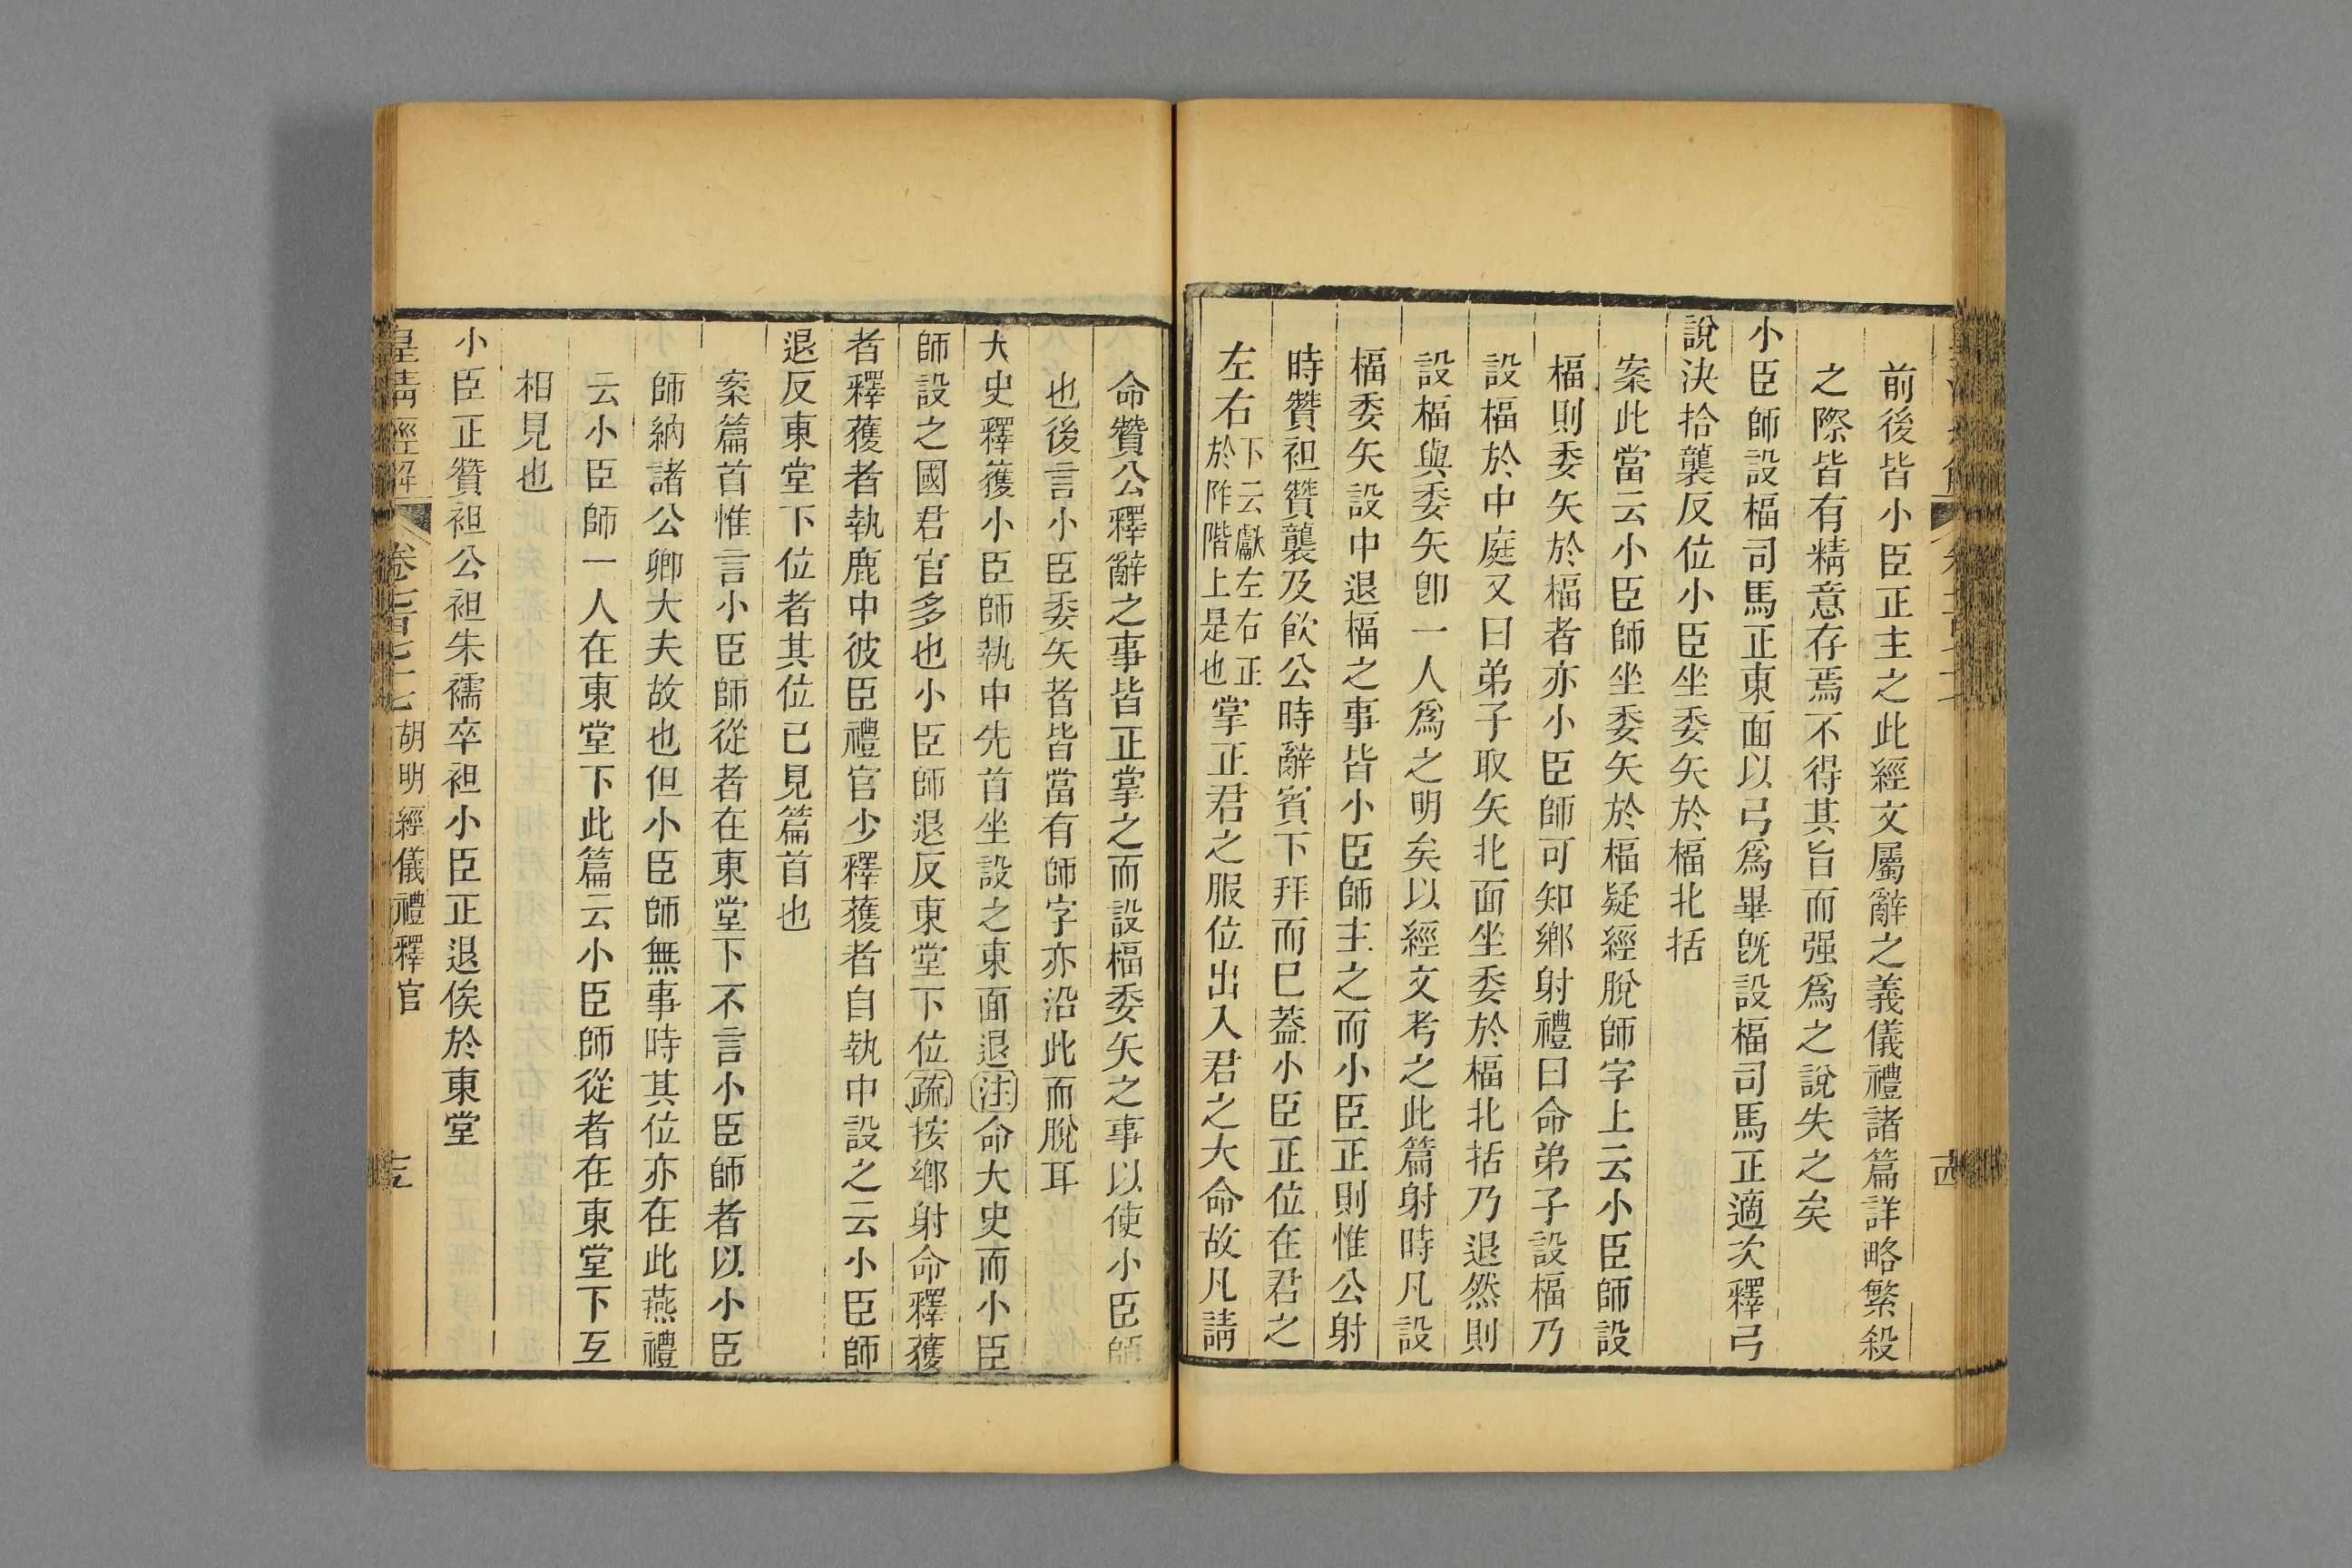 前後皆小臣正主之此經文屬辭之義儀禮諸篇詳略繁殺
之際皆有精意存焉不得其旨而强爲之說失之矣
小臣師設楅司馬正東面以弓爲畢旣設楅司馬正適次釋弓
說決拾襲反位小臣坐委矢於楅北括
案此當云小臣師坐委矢於楅疑經脫師字上云小臣師設
楅則委矢於楅者亦小臣師可知鄉射禮曰命弟子設楅乃
設楅於中庭又曰弟子取矢北面坐委於楅北括乃退然則
設楅與委矢卽一人爲之明矣以經文考之此篇射時凡設
楅委矢設中退楅之事皆小臣師主之而小臣正則惟公射
時贊袒贊襲及飮公時辭賓下拜而已蓋小臣正位在君之
左右下云獻左右正於阼階上是也掌正君之服位出入君之大命故凡請
命贊公釋辭之事皆正掌之而設楅委矢之事以使小臣師
也後言小臣委矢者皆當有師字亦沿此而脫耳
大史釋獲小臣師執中先首坐設之東面退注命大史而小臣
師設之國君官多也小臣師退反東堂下位疏按鄉射命釋獲
者釋獲者執鹿中彼臣禮官少釋獲者自執中設之云小臣師
退反東堂下位者其位已見篇首也
案篇首惟言小臣師從者在東堂下不言小臣師者以小臣
師納諸公卿大夫故也但小臣師無事時其位亦在此燕禮
云小臣師一人在東堂下此篇云小臣師從者在東堂下互
相見也
小臣正贊袒公袒朱襦卒袒小臣正退俟於東堂
皇清經解 卷七百七十七 胡明經儀禮釋官